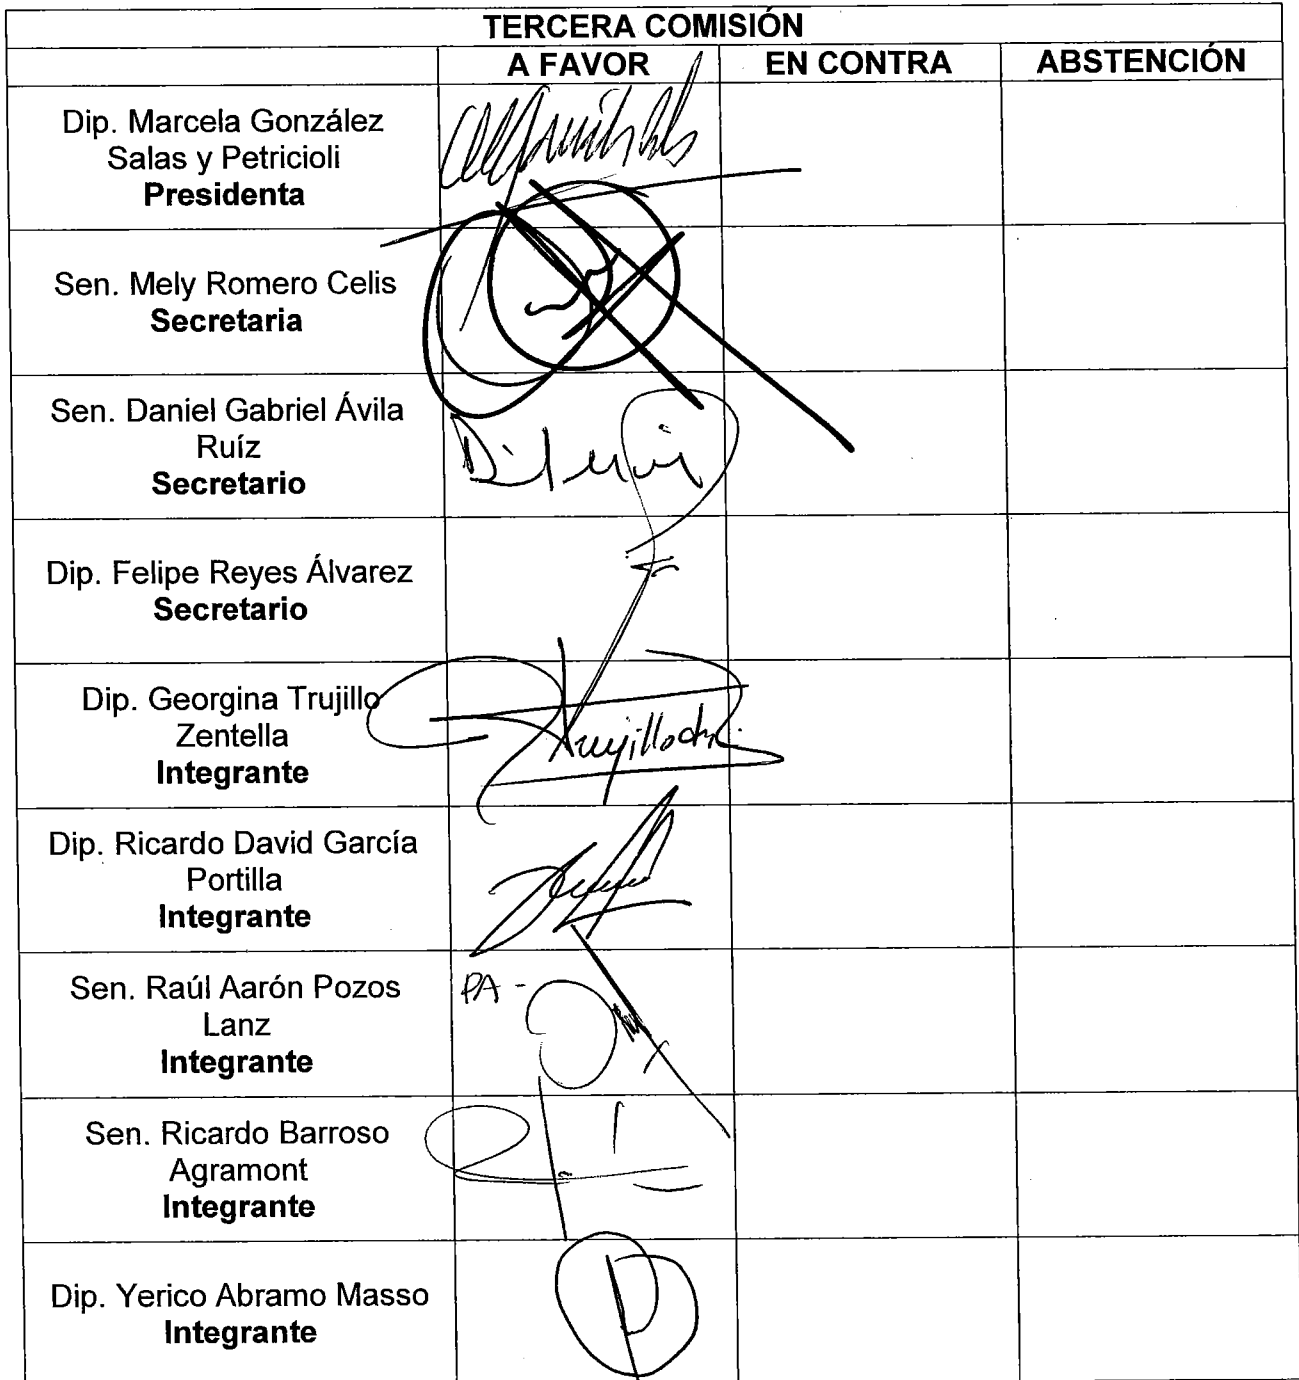 TERCERA COMISIÓN
A FAVOR EN CONTRA ABSTENCIÓN
Dip. Marcela González
Salas y Petricioli
Presidenta
Sen. Mely Romero Celis
Secretaria
Sen. Daniel Gabriel Ávila
Ruíz
Secretario
Dip. Felipe Reyes Álvarez
Secretario
Dip. Georgina Trujillo
Zentella
Integrante
Dip. Ricardo David García
Portilla
Integrante
Sen. Raúl Aarón Pozos
Lanz
Integrante
PA -
Sen. Ricardo Barroso
Agramont
Integrante
Dip. Yerico Abramo Masso
Integrante